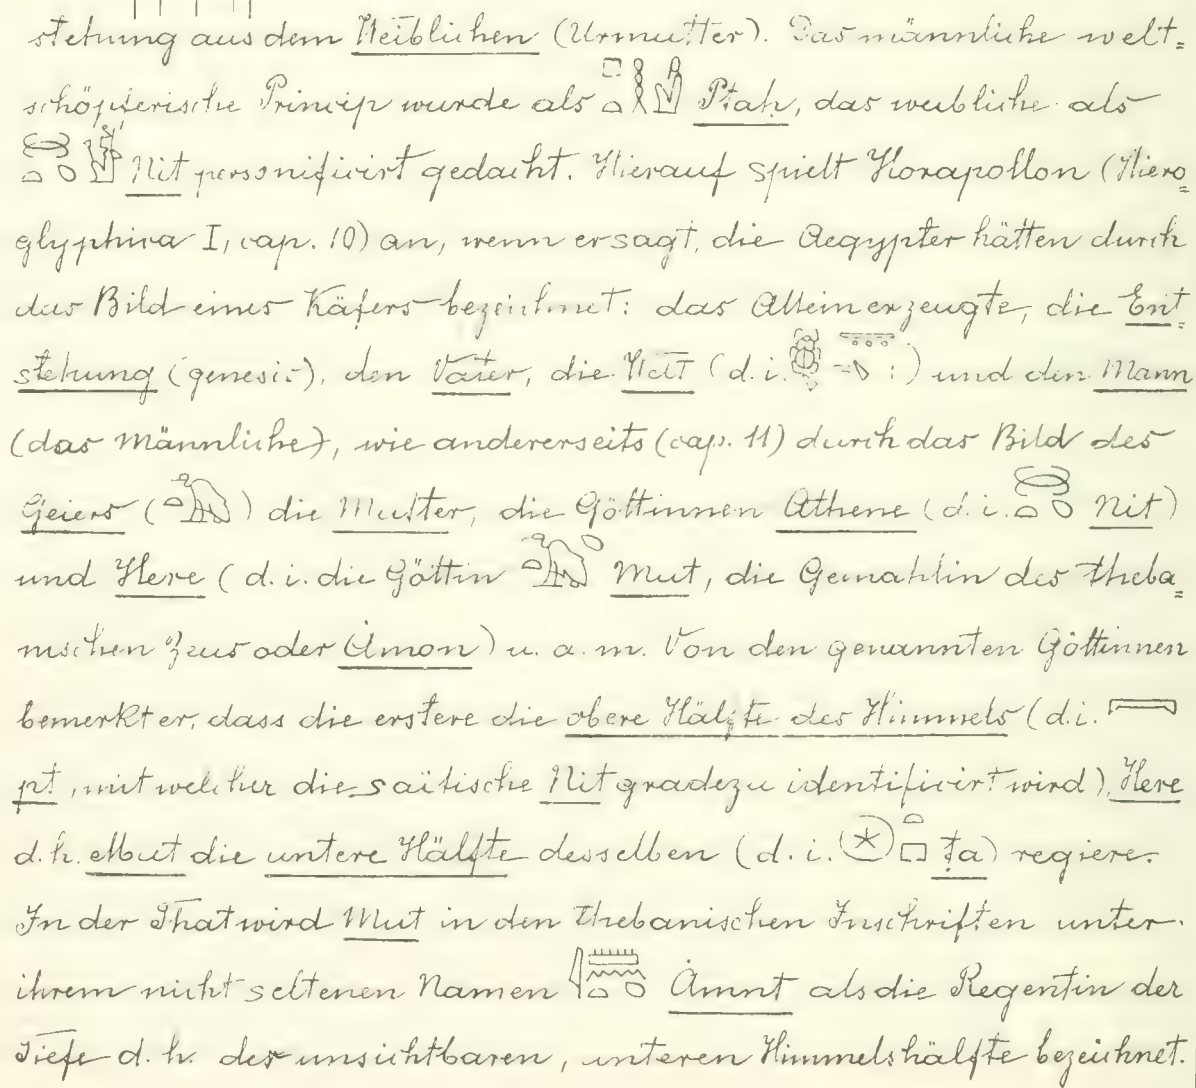 stehung aus dem Weiblichen (Urmutter). Das männliche welt=
schöpferische Princip wurde als 𓊪𓏏𓎛𓁰 Ptaḥ, das weibliche als
Nit personificirt gedacht. Hierauf spielt Horapollon (Hiero=
glyphica I, cap. 10) an, wenn er sagt, die Aegypter hätten durch
das Bild eines Käfers bezeichnet: das Alleinerzeugte, die Ent=
stehung (genesis), den Vater, die Welt (d. i. :) und den Mann
(das Männliche), wie andererseits (cap. 11) durch das Bild des
Geiers () die Mutter, die Göttinnen Athene (d. i. Nit)
und Here (d. i. die Göttin Mut, die Gemahlin des theba=
nischen Zeus oder Ȧmon) u. a. m. Von den genannten Göttinnen
bemerkt er, dass die erstere die obere Hälfte des Himmels (d. i. 𓇯
pt, mit welcher die saïtische Nit gradezu identificirt wird), Here
d. h. Mut die untere Hälfte desselben (d. i. 𓇽𓏏𓉐 ṭa) regiere.
In der That wird Mut in den thebanischen Inschriften unter
ihrem nicht seltenen Namen 𓇋𓏠𓈖𓏏𓆇 Ȧmnt als die Regentin der
Tiefe d. h. der unsichtbaren, unteren Himmelshälfte bezeichnet.